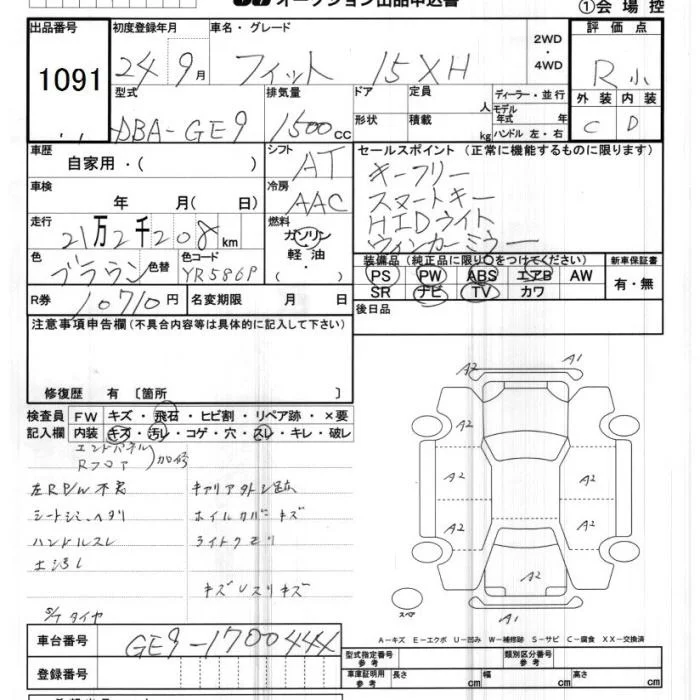 オークション出品申込書
①会場控
出品番号 初度登録年月 車名・グレード 2WD・4WD 評価点
1091 24 9月 フィット 15XH R小
型式 排気量 ドア 定員 人 ディーラー・並行 外装 内装
DBA-GE9 1500cc 形状 積載 kg モデル年式 年 ハンドル 左・右 C D
車歴 自家用・( ) シフト AT セールスポイント (正常に機能するものに限ります)
キーフリー
スマートキー
HIDライト
ウィンカーミラー
車検 年 月( 日) 冷房 AAC
走行 21万2千208km 燃料 ガソリン・軽油・
色 ブラウン 色替 色コード YR586P
装備品(純正品に限り○をつけてください) 新車保証書
PS PW ABS エアB AW 有・無
SR ナビ TV カワ
R券 10710円 名変期限 月 日
後日品
注意事項申告欄(不具合内容等は具体的に記入して下さい)
修復歴 有 〔箇所 〕
検査員 FW キズ・飛石・ヒビ割・リペア跡・×要
記入欄 内装 キズ・汚レ・コゲ・穴・スレ・キレ・破レ
エンドパネル
Rフロア 加修
左RP/W不良
シートシミ、ヘタリ
ホイルカバーキズ
ハンドルスレ
ライトクモリ
キズUスリキズ
S/Tタイヤ
A2 A1
A2
A2 A2
A2 A2
A2
スペア A1
A-キズ E-エクボ U-凹み W-補修跡 S-サビ C-腐食 XX-交換済
車台番号 GE9-1700444X
型式指定番号 参考 類別区分番号 参考
登録番号 車庫証明用 参考 長さ cm 幅 cm 高さ cm